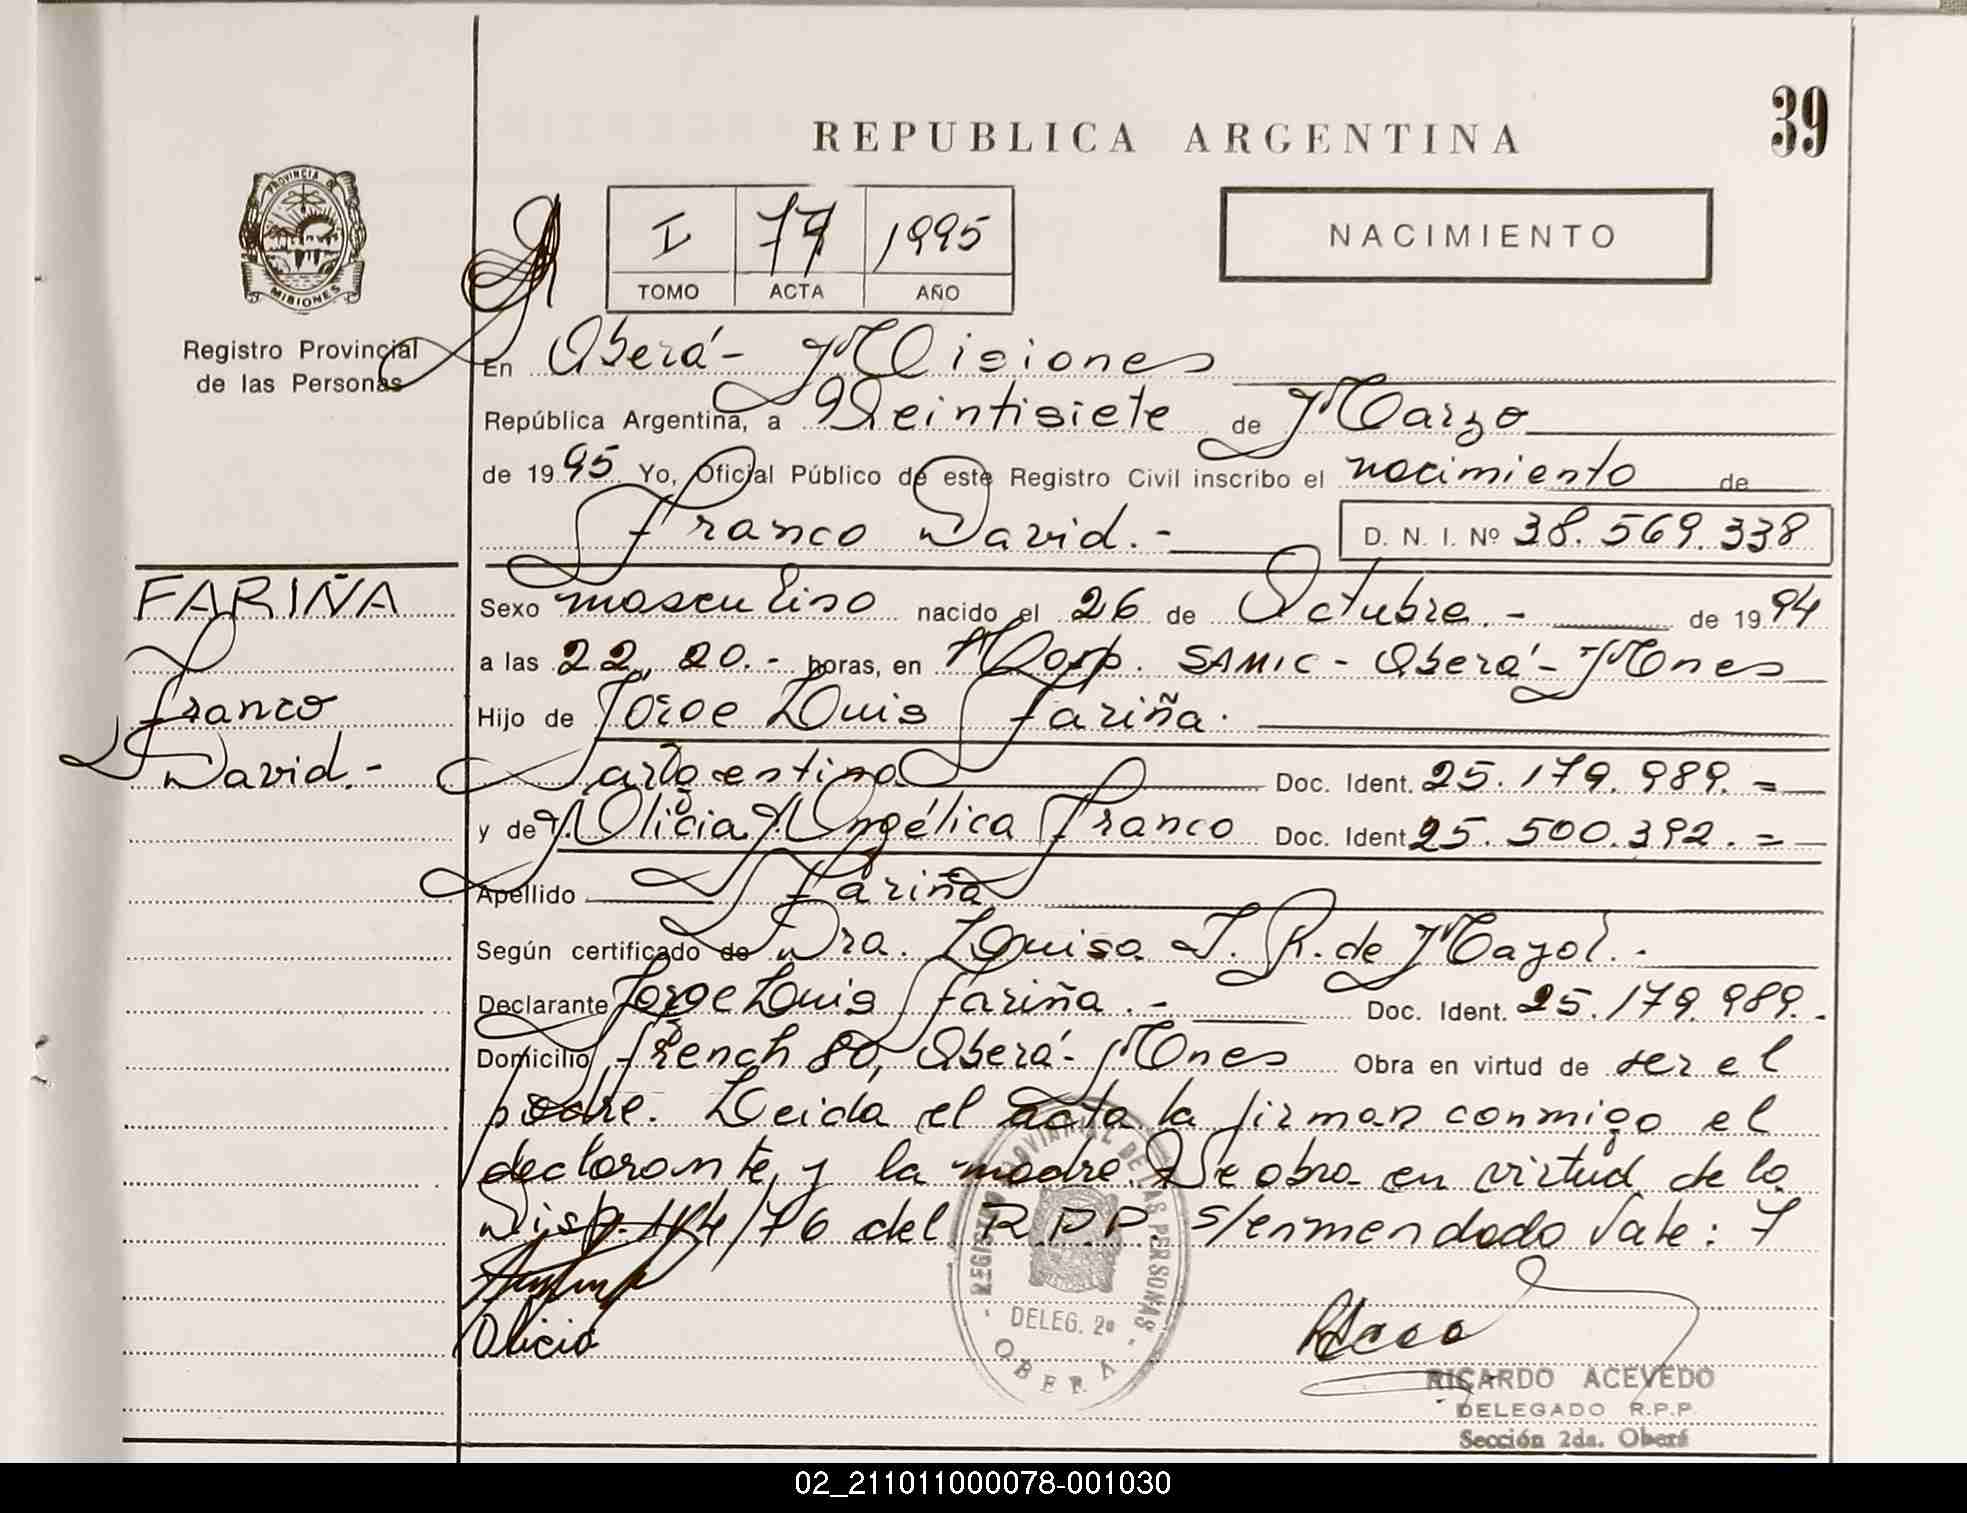 39
REPUBLICA ARGENTINA
PROVINCIA DE
MISIONES
I 77 1995
TOMO ACTA AÑO
NACIMIENTO
Registro Provincial
de las Personas
En Oberá - Misiones
República Argentina, a Veintisiete de Marzo
de 1995 Yo, Oficial Público de este Registro Civil inscribo el nacimiento de
Franco David.- D. N. I. Nº 38.569.338
FARIÑA
Franco
David.-
Sexo masculino nacido el 26 de Octubre.- de 1994
a las 22,20.- horas, en Hosp. SAMIC - Oberá - Mnes
Hijo de Jorge Luis Fariña.
argentino Doc. Ident. 25.179.989.=
y de Alicia Angélica Franco Doc. Ident. 25.500.392.=
Apellido Fariña
Según certificado de Dra. Luisa I. R. de Mayol.-
Declarante Jorge Luis Fariña.- Doc. Ident. 25.179.989.-
Domicilio French 80, Oberá - Mnes Obra en virtud de ser el
padre. Leida el acta la firman conmigo el
declarante y la madre. Se obra en virtud de la
Disp. 114/76 del R.P.P. s/enmendado Vale: 7
Alicia
REGISTRO PROVINCIAL DE LAS PERSONAS
- DELEG. 2ª -
OBERA
RICARDO ACEVEDO
DELEGADO R.P.P.
Sección 2da. Oberá
02_211011000078-001030